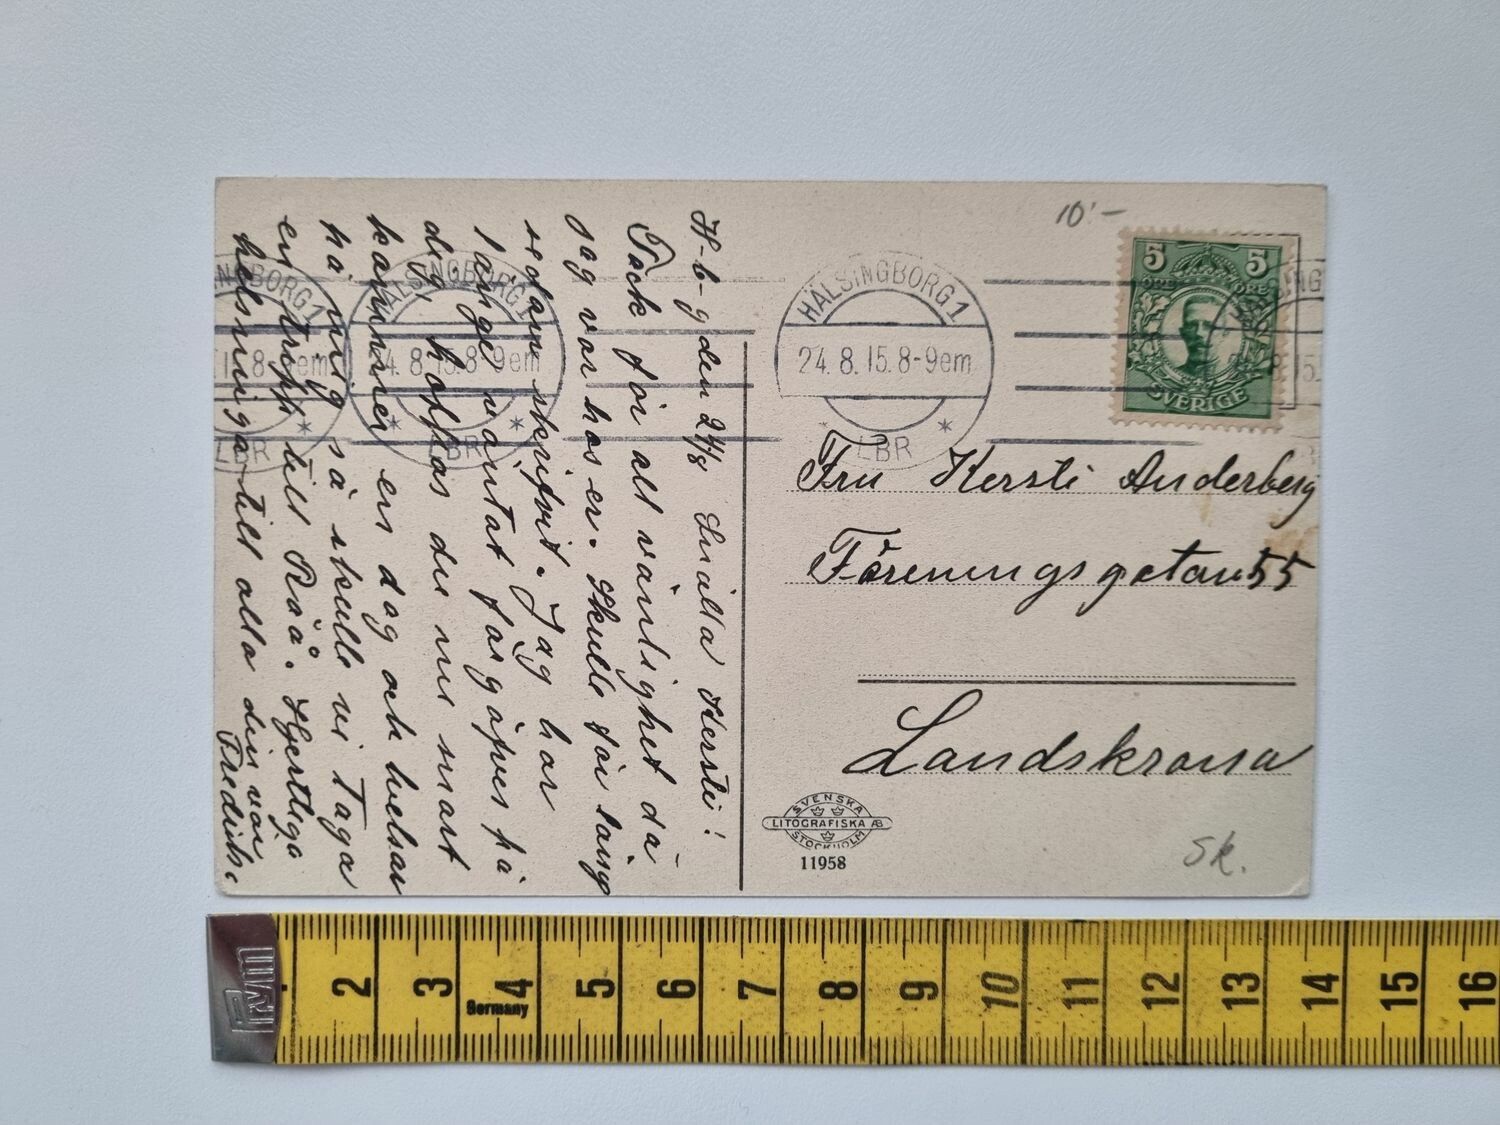 H-b-g den 24/8 Snälla Kersti!
Tack för all vänlighet då
jag var hos er. Skulle för läng
sedan skrifvit. Jag har
länge väntat förgäfves på
de, hoffas du nu snart
kommer en dag och helsar
på mig så skulle vi taga
en tripp till Råå. Hjertliga
hälsningar till alla din vän
Fredrik.
10'-
5 5
ÖRE ÖRE
SVERIGE
HÄLSINGBORG 1
24. 8. 15. 8-9em
LBR
HÄLSINGBORG 1
24 8 15. 8-9em
LBR
NGBORG 1
15. 8-9em
LBR
Fru Kersti Anderberg
Föreningsgatan 55
Landskrona
SVENSKA
LITOGRAFISKA AB
STOCKHOLM
11958
Sk.
Germany
2 3 4 5 6 7 8 9 10 11 12 13 14 15 16